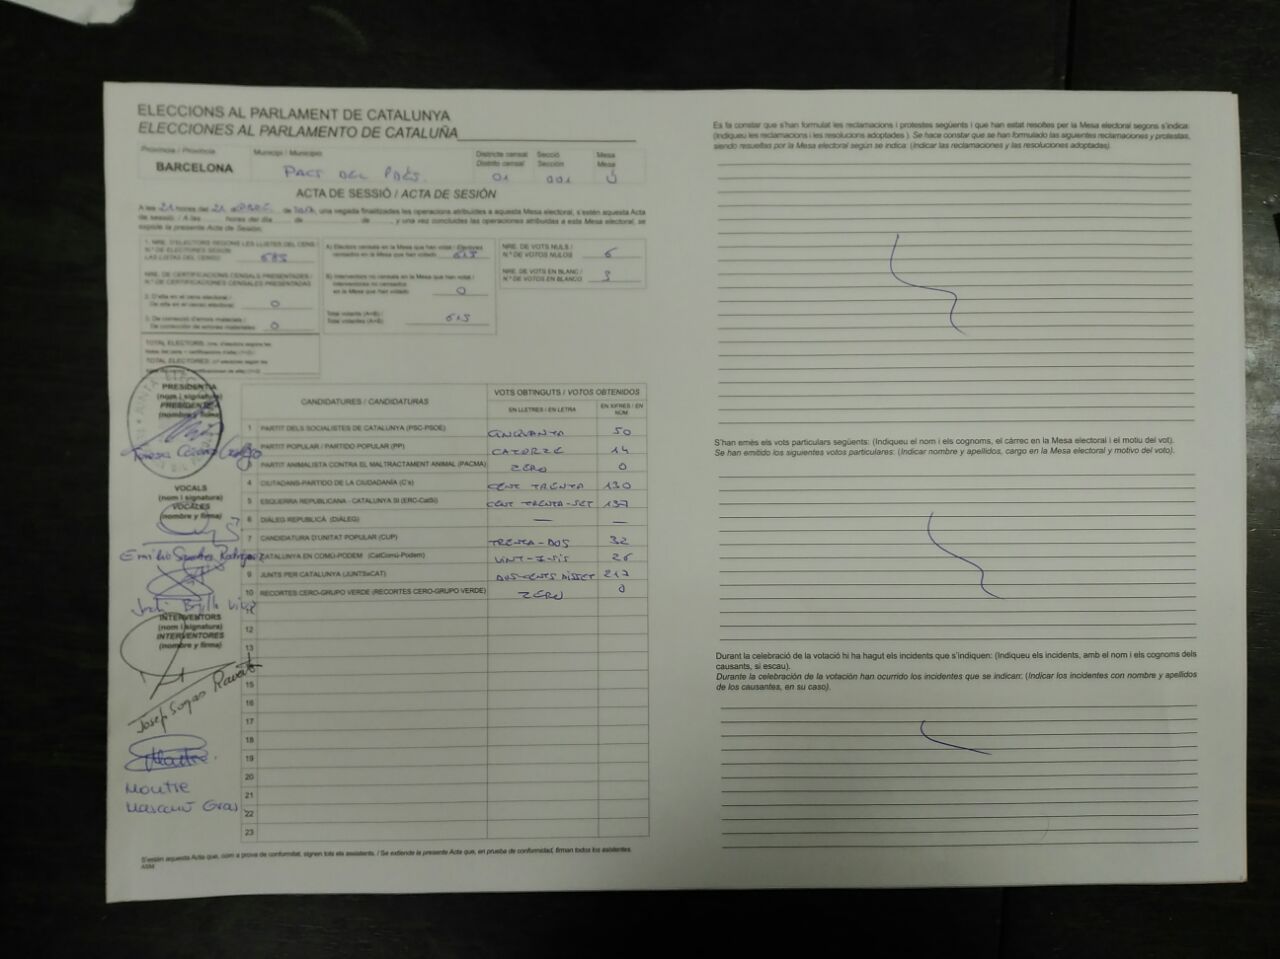 ELECCIONS AL PARLAMENT DE CATALUNYA
ELECCIONES AL PARLAMENTO DE CATALUÑA
Província / Provincia
Municipi / Municipio
Districte censal
Distrito censal
Secció
Sección
Mesa
Mesa
BARCELONA
PACS DEL PDÈS.
01
001
U
ACTA DE SESSIÓ / ACTA DE SESIÓN
A les 21 hores del 21 de una vegada finalitzades les operacions atribuïdes a aquesta Mesa electoral, s'estén aquesta Acta
de sessió. / A las horas del día de de y una vez concluidas las operaciones atribuidas a esta Mesa electoral, se
expide la presente Acta de Sesión:
1. NRE. D'ELECTORS SEGONS LES LLISTES DEL CENS /
N.º DE ELECTORES SEGÚN
LAS LISTAS DEL CENSO
NRE. DE CERTIFICACIONS CENSALS PRESENTADES /
N.º DE CERTIFICACIONES CENSALES PRESENTADAS
2. D'alta en el cens electoral /
De alta en el censo electoral 0
3. De correcció d'errors materials /
De corrección de errores materiales 0
A) Electors censats en la Mesa que han votat / Electores
censados en la Mesa que han votado
B) Interventors no censats en la Mesa que han votat /
Interventores no censados
en la Mesa que han votado 0
Total votants (A+B) /
Total votantes (A+B)
NRE. DE VOTS NULS /
N.º DE VOTOS NULOS 6
NRE. DE VOTS EN BLANC /
N.º DE VOTOS EN BLANCO
PRESIDENT/A
(nom i signatura)
PRESIDENTE/A
(nombre y firma)
VOCALS
(nom i signatura)
VOCALES
(nombre y firma)
Emilio Sanchez Rodriguez
INTERVENTORS
(nom i signatura)
INTERVENTORES
(nombre y firma)
Josep Sogas
Montse
CANDIDATURES / CANDIDATURAS
VOTS OBTINGUTS / VOTOS OBTENIDOS
EN LLETRES / EN LETRA
EN XIFRES / EN NÚM.
1 PARTIT DELS SOCIALISTES DE CATALUNYA (PSC-PSOE) CINQUANTA 50
2 PARTIT POPULAR / PARTIDO POPULAR (PP) CATORZE 14
3 PARTIT ANIMALISTA CONTRA EL MALTRACTAMENT ANIMAL (PACMA) ZERO 0
4 CIUTADANS-PARTIDO DE LA CIUDADANÍA (C's) CENT TRENTA 130
5 ESQUERRA REPUBLICANA - CATALUNYA SÍ (ERC-CatSí) CENT TRENTA-SET 137
6 DIÀLEG REPUBLICÀ (DIÀLEG) — —
7 CANDIDATURA D'UNITAT POPULAR (CUP) TRENTA-DOS 32
8 CATALUNYA EN COMÚ-PODEM (CatComú-Podem) VINT-I-SIS 26
9 JUNTS PER CATALUNYA (JUNTSxCAT) DOS-CENTS DISSET 217
10 RECORTES CERO-GRUPO VERDE (RECORTES CERO-GRUPO VERDE) ZERO 0
12
13
15
16
17
18
19
20
21
22
23
S'estén aquesta Acta que, com a prova de conformitat, signen tots els assistents. / Se extiende la presente Acta que, en prueba de conformidad, firman todos los asistentes.
Es fa constar que s'han formulat les reclamacions i protestes següents i que han estat resoltes per la Mesa electoral segons s'indica:
(Indiqueu les reclamacions i les resolucions adoptades ). Se hace constar que se han formulado las siguientes reclamaciones y protestas,
siendo resueltas por la Mesa electoral según se indica: (Indicar las reclamaciones y las resoluciones adoptadas).
S'han emès els vots particulars següents: (Indiqueu el nom i els cognoms, el càrrec en la Mesa electoral i el motiu del vot).
Se han emitido los siguientes votos particulares: (Indicar nombre y apellidos, cargo en la Mesa electoral y motivo del voto).
Durant la celebració de la votació hi ha hagut els incidents que s'indiquen: (Indiqueu els incidents, amb el nom i els cognoms dels
causants, si escau).
Durante la celebración de la votación han ocurrido los incidentes que se indican: (Indicar los incidentes con nombre y apellidos
de los causantes, en su caso).